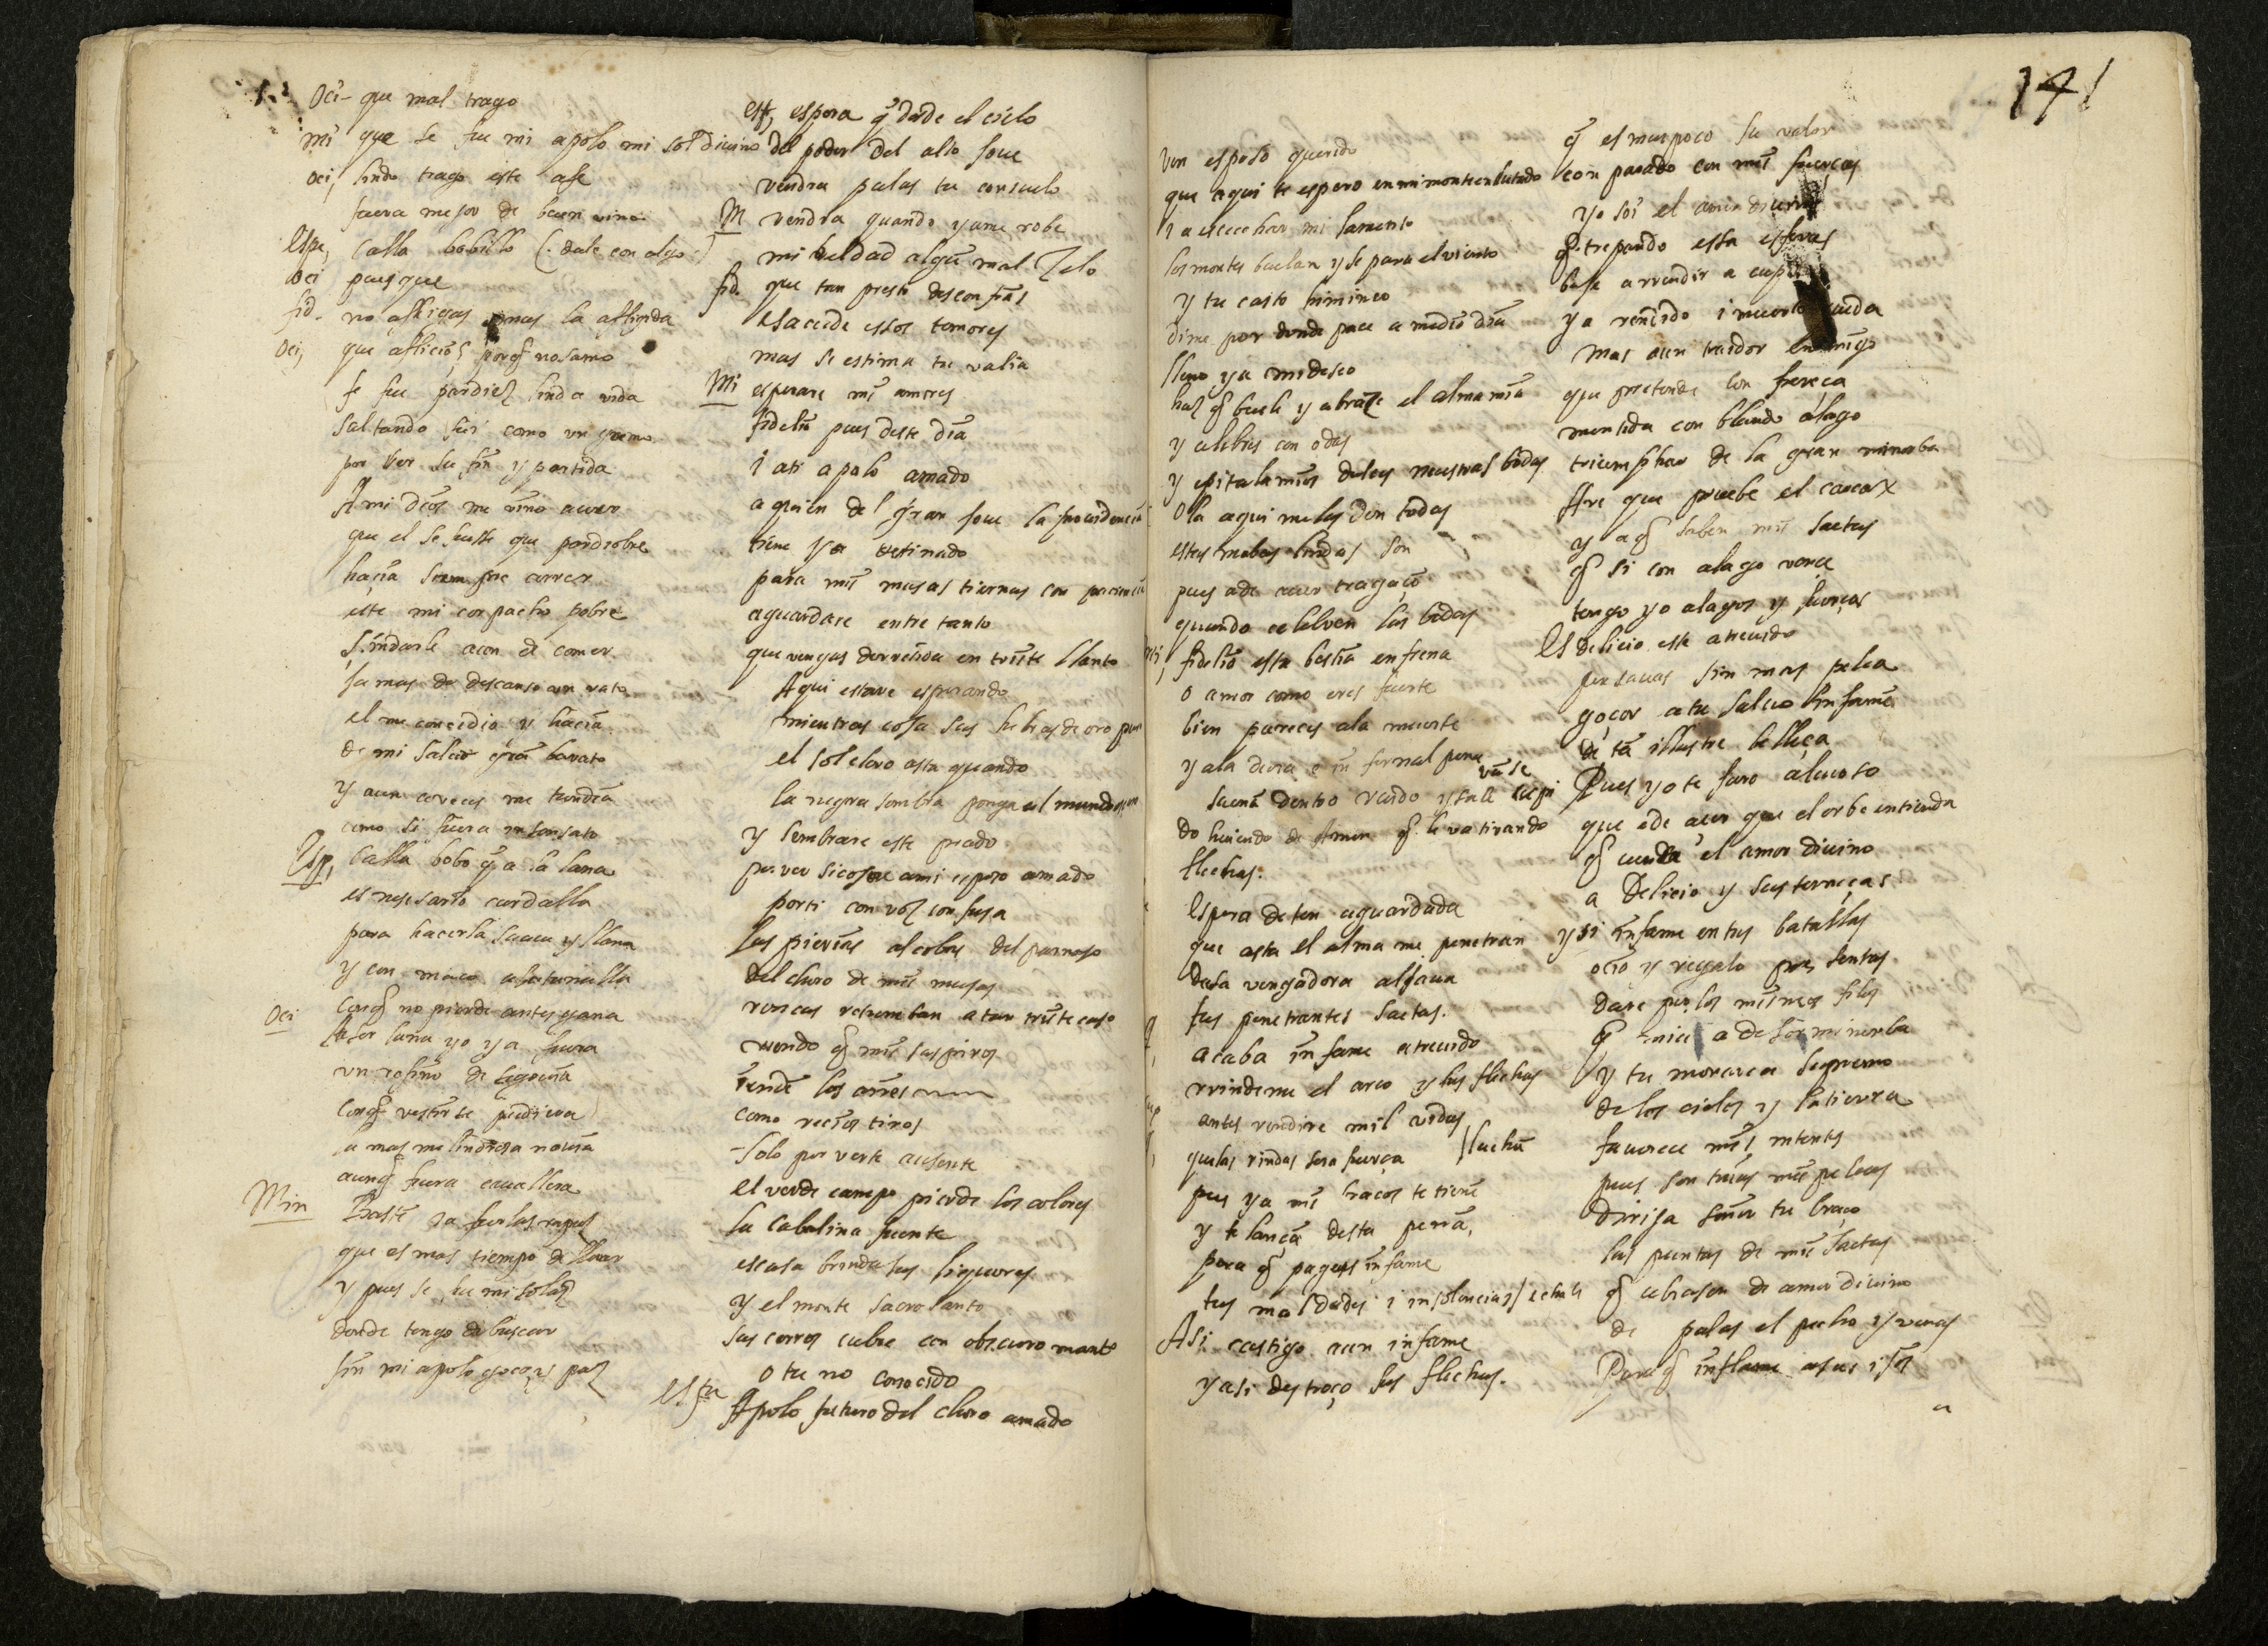 Oci- que mal trago
mi que se fue mi apolo mi sol diuino
oci, lindo trago este ase
fuera mejor de buen vino
Espe, calla bobillo (. dale con algo :)
oci pues que
fid. no aflijas mas la aflijida
Oci, que aflicio porq̃ nosamo
se fue pardiez linda vida
saltando fui como un gamo
por ver su fin y partida
A mi dios me vino auer
que el se fuesse que pardiobre
hacia siempre correr
este mi corpacho pobre
sindarle aun de comer
jamas de descanso un rato
el me concedio y hacia
de mi salud grã barato
y aun coces me tiraria
como si fuera insensato
Esp, calla bobo q̃ a la lana
es nesesario cardalla
para hacerla suaue y llana
y con
Oci conq̃ no pierde antes gana
señor lana yo ya fuera
un rosino de
conq̃ vestirse pudiera
la mas melindrosa nouia
aunq̃ fuera cauallera
Min Baste ya
que es mas tiempo de llorar
y pues se fue mi solaz
donde tengo de buscar
sin mi apolo gozo y paz
esp, espera q̃ desde el cielo
del poder del alto Joue
vendra palas tu consuelo
M vendra quando yame robe
mi beldad algũ mal zelo
fid. que tan presto desconfias
esacude essos temores
mas se estima tu valia
Mi esperare mis amores
fidelia pues deste dia
i ati apolo amado
a quien del gran Joue la prouidencia
tiene ya destinado
para mis musas tiernas con paciencia
aguardare entre tanto
que vengas derretida en triste llanto
Aqui estare esperando
mientras coja sus hebras de oro
el sol claro asta quando
la negra sombra ponga al mundo
y sembrare este prado
por ver sicogere ami esposo amado
porti con voz confusa
las pierias alcobas del parnaso
del choro de mis musas
roncas retumban a tan triste caso
viendo q̃ mis suspiros
rendẽ los aires
como recios tiros
Solo por verte ausente
el verde campo pierde los colores
la cabalina fuente
escasa brinda sus liquores
y el monte sacrosanto
sus cerros cubre con obscuro manto
o tu no conocido
Apolo futuro del choro amado
141
ven esposo querido
que aqui te espero en mi monte enlutado
i a escuchar mi lamento
los montes baelan y se para el viento
y tu casto himineo
dime por donde pace a medio dia
lleno ya mi deseo
haz q̃ buele y abraze el alma mia
y celebres con odas
y epitalamios dulces nuestras bodas
Ola aqui melas den todas
estas nobas lindas son
pues a de auer tragaçõ
quando celebren las bodas
fidelio esta bestia enfrena
o amor como eres fuerte
bien pareces ala muerte
y ala deora e infernal pena
suena dentro ruido y sale
do huiendo de Amor q̃ le va tirando
flechas.
Espera deten aguardada
que asta el alma me penetran
desa vengadora aljaua
sus penetrantes saetas.
acaba infame atreuido
rrindeme el arco y las flechas
antes rendire mil vidas
que las rindas sera fuerça luchã
pues ya mis braços te tienẽ
y te lançã desta peña,
para q̃ pagues infame
tus maldades i insolencias
Asi castigo aun infame
y asi destroço sus flechas.
q̃ es mui poco su valor
conparado con mis fuerças
yo soi el amor diuino
q̃. trepando esta esferas
baje a rrendir a cupido
ya rendido i muerto queda
Mas aun traidor enemigo
que pretende con fiereça
mentida con blando alago
triumphar de la gran minerba
Are que pruebe el carcax
y a q̃ saben mis saetas
q̃ si con alago vence
tengo yo alagos y fuerças
Es delicio este atreuido
pensauas sin mas pelea
goçar atu saluo infame
de tã illustre belleça
Pues yo te juro aleuoso
que ede aser que el orbe entienda
q̃ el amor diuino
a Delicio y sus terneças
y si infame en tus batallas
ocio y regalo presentas
dare por los mismos filos
q̃ mia a de ser minerba
y tu monarca supremo
de los cielos y la tierra
fauorece mis intentos
pues son tuias mis peleas
dirija señor tu braço
las puntas de mis saetas
q̃ abrasen de amor diuino
de palas el pecho y venas
Para q̃ inflame